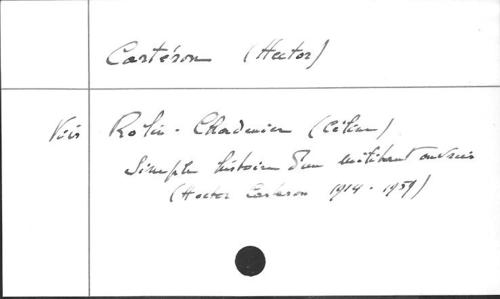 Cartéron (Hector)
Voir Rolin-Chadunier (Céline)
Simple histoire d'un militant ouvrier
(Hector Carteron 1914-1959)